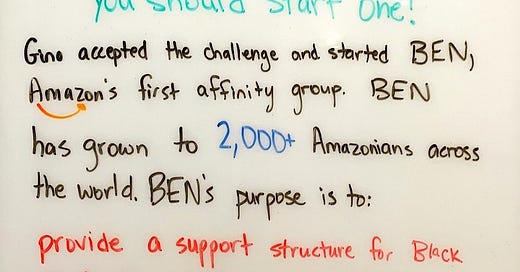 you should start one!
Gino accepted the challenge and started BEN,
Amazon's first affinity group. BEN
has grown to 2,000+ Amazonians across
the world. BEN's purpose is to:
provide a support structure for Black